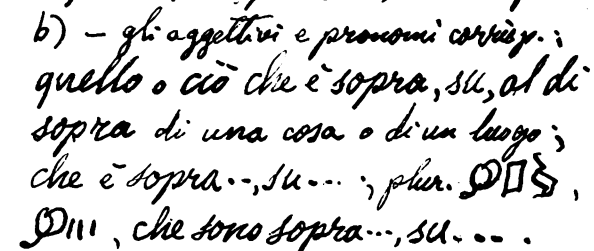 b) – gli aggettivi e pronomi corrisp.:
quello o ciò che è sopra, su, al di
sopra di una cosa o di un luogo;
che è sopra..., su...; plur. ,
, che sono sopra..., su....